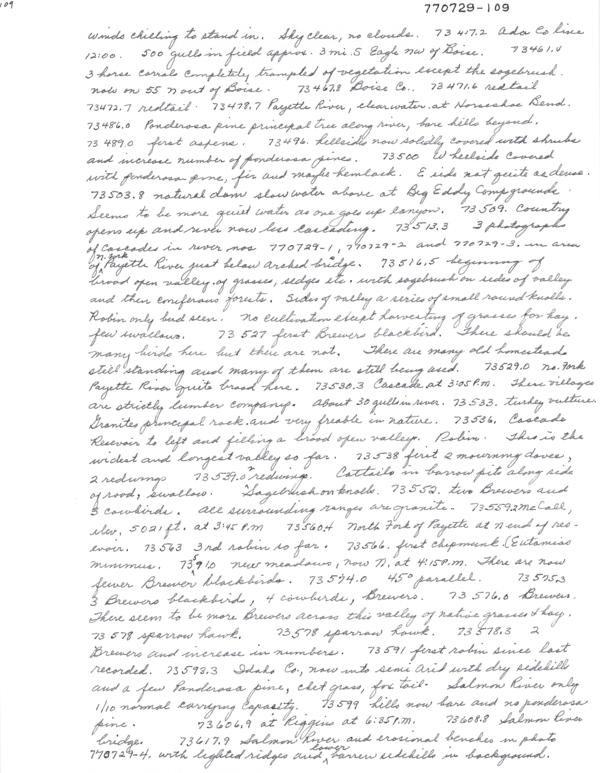 109
770729-109
winds chilling to stand in. Sky clear, no clouds. 73 417.2 Ada Co line
12:00. 500 gulls in field approx. 3 mi. S Eagle NW of Boise. 73461.4
3 horse corrals completely trampled of vegetation except the sagebrush.
now on 55 N out of Boise. 73467.8 Boise Co. 73471.6 redtail
73472.7 redtail. 73478.7 Payette River, clear water at Horseshoe Bend.
73486.0 Ponderosa pine principal tree along river, bare hills beyond.
73 489.0 first aspens. 73496. hillsides now solidly covered with shrubs
and increase number of ponderosa pines. 73500 W hillside covered
with ponderosa pine, fir and maybe hemlock. E side not quite as dense.
73503.8 natural dam slow water above at Big Eddy Campgrounds.
Seems to be more quiet water as one goes up canyon. 73509. Country
opens up and river now less cascading. 73513.3 3 photographs
of Cascades in river, nos 770729-1, 770729-2 and 770729-3. in area
of N. Fork Payette River just below arched bridge. 73516.5 beginning of
broad open valley, of grasses, sedges etc. with sagebrush on sides of valley
and then coniferous forests. Sides of valley a series of small round knolls.
Robin only bird seen. No cultivation except harvesting of grasses for hay.
few swallows. 73 527 first Brewers blackbird. There should be
many birds here but there are not. There are many old homesteads
still standing and many of them are still being used. 73529.0 No. Fork
Payette River quite broad here. 73530.3 Cascade at 3:05 P.M. These villages
are strictly lumber company. About 30 gulls in river. 73 533. turkey vulture.
Granites principal rock and very freable in nature. 73536. Cascade
Reservoir to left and filling a broad open valley. Robin. This is the
widest and longest valley so far. 73538 first 2 mourning doves,
2 redwings 73539.0 redwings. Cattails in barrow pits along side
of road, swallow. Sagebrush on knolls. 73552. two Brewers and
3 cowbirds. All surrounding ranges are granite. 73559.2 McCall,
elev. 5021 ft. at 3:45 P.M 73560.4 North Fork of Payette at N end of res-
evoir. 73563 3rd robin so far. 73566. first chipmunk (Eutamias
minimus. 73591.0 new meadows, now N, at 4:15 P.M. There are now
fewer Brewer blackbirds. 73574.0 45° parallel. 73575.3
3 Brewers blackbirds, 4 cowbirds, Brewers. 73 576.0 Brewers.
There seem to be more Brewers across this valley of native grasses & hay.
73 578 sparrow hawk. 73578 sparrow hawk. 73578.3 2
Brewers and increase in numbers. 73591 first robin since last
recorded. 73593.3 Idaho Co., now into semi arid with dry sidehills
and a few Ponderosa pine, chet grass, fox tail. Salmon River only
1/10 normal carrying capasity. 73599 hills now bare and no ponderosa
pine. 73606.9 at Riggins at 6:35 P.M. 73608.8 Salmon River
bridge. 73617.9 Salmon River and erosional benches in photo
770729-4. with lighted ridges and lower barren sidehills in background.